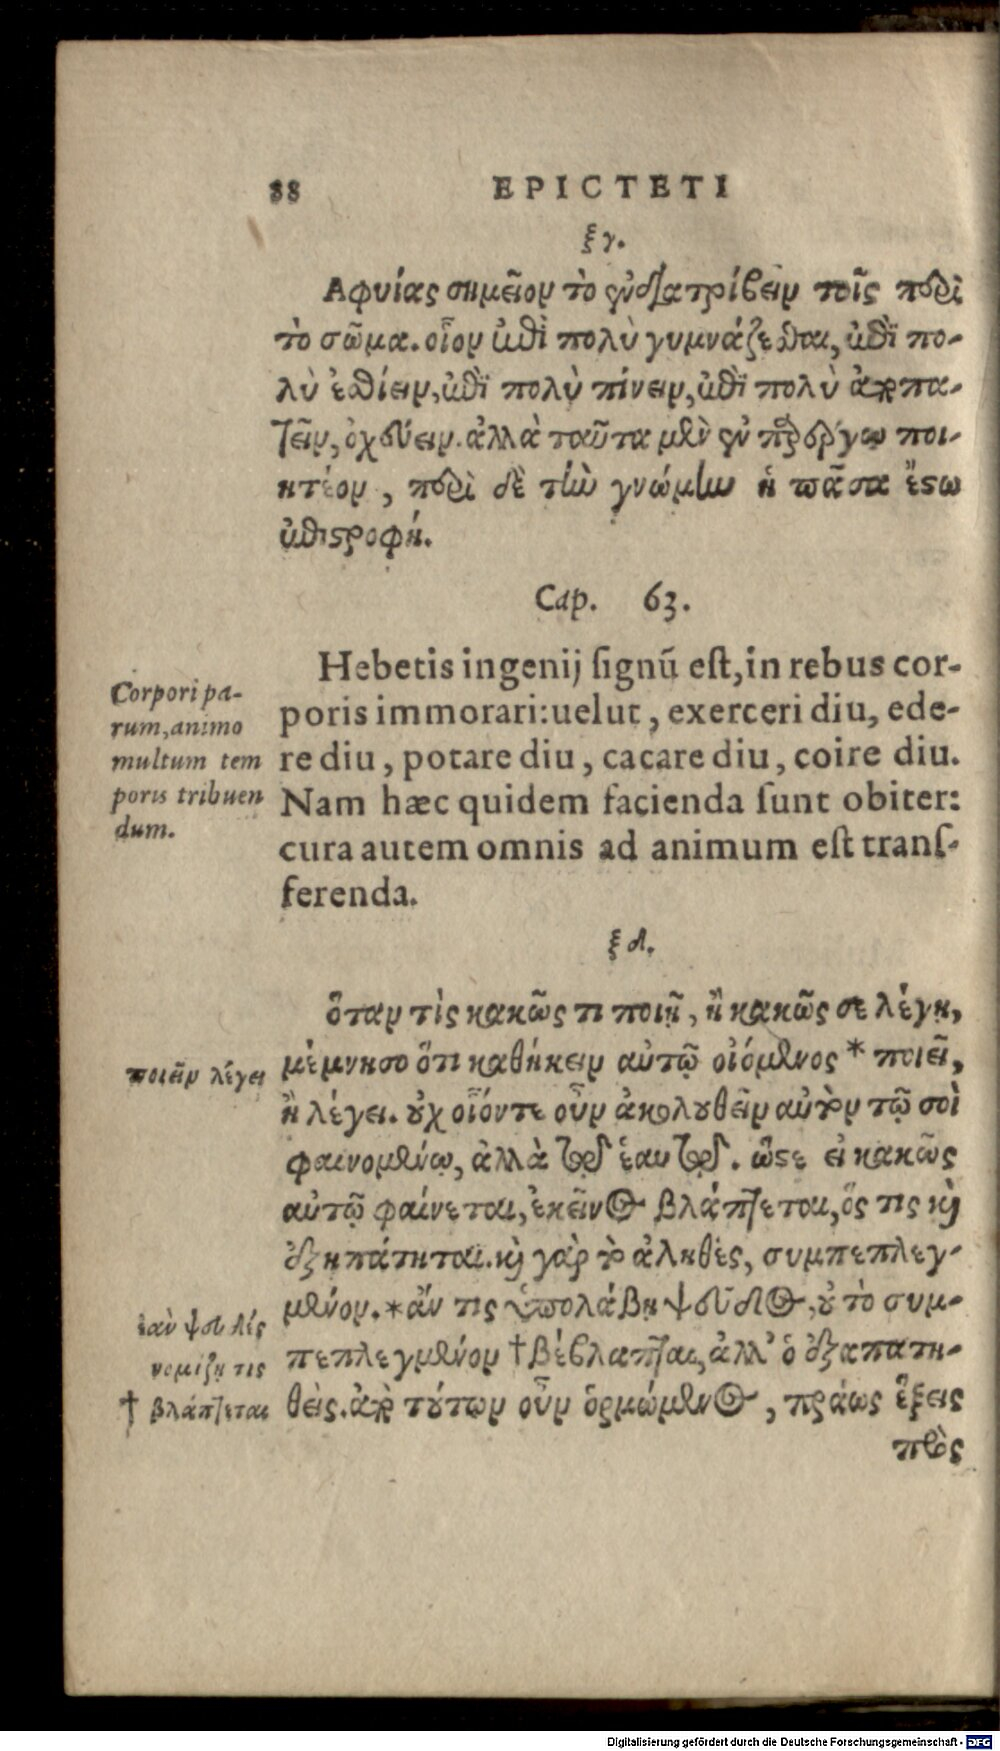 88 EPICTETI
ξγ.
Αφυίας σημεῖον τὸ ἐνδιατρίβειν τοῖς περὶ
τὸ σῶμα. οἷον ἐπὶ πολὺ γυμνάζεσθαι, ἐπὶ πο-
λὺ ἐσθίειν, ἐπὶ πολὺ πίνειν, ἐπὶ πολὺ ἀφοπα-
τεῖν, ὀχεύειν. ἀλλὰ ταῦτα μὲν ἐν παρέργῳ ποι-
ητέον, περὶ δὲ τὴν γνώμην ἡ πᾶσα ἔστω
ἐπιστροφή.
Cap. 63.
Hebetis ingenij signū est, in rebus cor-
poris immorari: uelut, exerceri diu, ede-
re diu, potare diu, cacare diu, coire diu.
Nam hæc quidem facienda sunt obiter:
cura autem omnis ad animum est trans-
ferenda.
Corpori pa-
rum, animo
multum tem
poris tribuen
dum.
ξδ.
ὅταν τὶς κακῶς τι ποιῇ, ἢ κακῶς σε λέγῃ,
μέμνησο ὅτι καθήκειν αὐτῷ οἰόμενος * ποιεῖ,
ἢ λέγει. οὐχ οἷόντε οὖν ἀκολουθεῖν αὐτὸν τῷ σοὶ
φαινομένῳ, ἀλλὰ τῷ ἑαυτῷ. ὥστε εἰ κακῶς
αὐτῷ φαίνεται, ἐκεῖνος βλάπτεται, ὅς τις καὶ
ἐξηπάτηται. καὶ γὰρ τὸ ἀληθὲς, συμπεπλεγ-
μένον. * ἄν τις ὑπολάβῃ ψεῦδος, οὐ τὸ συμ-
πεπλεγμένον † βέβλαπται, ἀλλ' ὁ ἐξαπατη-
θείς. ἀπὸ τούτων οὖν ὁρμώμενος, πράως ἕξεις
πρὸς
ποιεῖν λέγει
ἐὰν ψευδές
νομίζῃ τις
† βλάπτεται
Digitalisierung gefördert durch die Deutsche Forschungsgemeinschaft - DFG